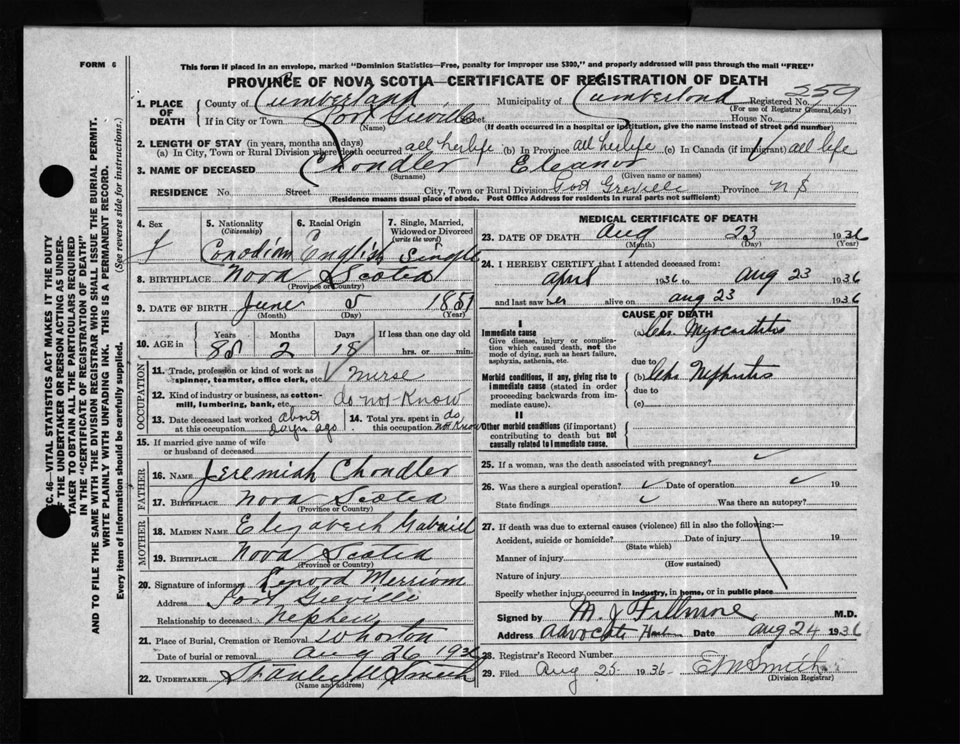 FORM 6
This form if placed in an envelope, marked "Dominion Statistics—Free, penalty for improper use $300," and properly addressed will pass through the mail "FREE"
PROVINCE OF NOVA SCOTIA—CERTIFICATE OF REGISTRATION OF DEATH
1. PLACE OF DEATH County of Cumberland Municipality of Cumberland Registered No. 259
(For use of Registrar General only)
If in City or Town Port Greville Street House No.
(Name) (If death occurred in a hospital or institution, give the name instead of street and number)
2. LENGTH OF STAY (in years, months and days)
(a) In City, Town or Rural Division where death occurred all her life (b) In Province all her life (c) In Canada (if immigrant) all life
3. NAME OF DECEASED Chandler Eleanor
(Surname) (Given name or names)
RESIDENCE No. Street City, Town or Rural Division Port Greville Province N S
(Residence means usual place of abode. Post Office Address for residents in rural parts not sufficient)
4. Sex 5. Nationality (Citizenship) 6. Racial Origin 7. Single, Married, Widowed or Divorced (write the word)
f Canadian English Single
8. BIRTHPLACE Nova Scotia
(Province or Country)
9. DATE OF BIRTH June 5 1851
(Month) (Day) (Year)
10. AGE in Years Months Days If less than one day old
85 2 18 hrs. or min.
OCCUPATION
11. Trade, profession or kind of work as spinner, teamster, office clerk, etc. Nurse
12. Kind of industry or business, as cotton-mill, lumbering, bank, etc. do not Know
13. Date deceased last worked at this occupation about days ago 14. Total yrs. spent in this occupation do not Know
15. If married give name of wife or husband of deceased
FATHER
16. NAME Jeremiah Chandler
17. BIRTHPLACE Nova Scotia
(Province or Country)
MOTHER
18. MAIDEN NAME Elizabeth Gabriel
19. BIRTHPLACE Nova Scotia
(Province or Country)
20. Signature of informant Lenord Merriam
Address Port Greville
Relationship to deceased Nephew
21. Place of Burial, Cremation or Removal Whorton
Date of burial or removal Aug 26 1936
22. UNDERTAKER Stanley W Smith
(Name and address)
MEDICAL CERTIFICATE OF DEATH
23. DATE OF DEATH Aug 23 1936
(Month) (Day) (Year)
24. I HEREBY CERTIFY that I attended deceased from:
April 1936 to Aug 23 1936
and last saw her alive on Aug 23 1936
CAUSE OF DEATH
I
Immediate cause (a) Chr. Myocarditis
Give disease, injury or complication which caused death, not the mode of dying, such as heart failure, asphyxia, asthenia, etc.
due to
Morbid conditions, if any, giving rise to immediate cause (stated in order proceeding backwards from immediate cause). (b) Chr Nephritis
due to
(c)
II
Other morbid conditions (if important) contributing to death but not causally related to immediate cause.
25. If a woman, was the death associated with pregnancy?
26. Was there a surgical operation? Date of operation 19
State findings Was there an autopsy?
27. If death was due to external causes (violence) fill in also the following:—
Accident, suicide or homicide? Date of injury 19
(State which)
Manner of injury
(How sustained)
Nature of injury
Specify whether injury occurred in industry, in home, or in public place
Signed by M. J. Fillmore M.D.
Address Advocate Date Aug 24 1936
28. Registrar's Record Number
29. Filed Aug 25 1936 E M Smith
(Division Registrar)
SEC. 46—VITAL STATISTICS ACT MAKES IT THE DUTY
OF THE UNDERTAKER OR PERSON ACTING AS UNDER-
TAKER TO OBTAIN ALL THE PARTICULARS REQUIRED
IN THE "CERTIFICATE OF REGISTRATION OF DEATH"
AND TO FILE THE SAME WITH THE DIVISION REGISTRAR WHO SHALL ISSUE THE BURIAL PERMIT.
WRITE PLAINLY WITH UNFADING INK. THIS IS A PERMANENT RECORD.
Every item of information should be carefully supplied. (See reverse side for instructions.)